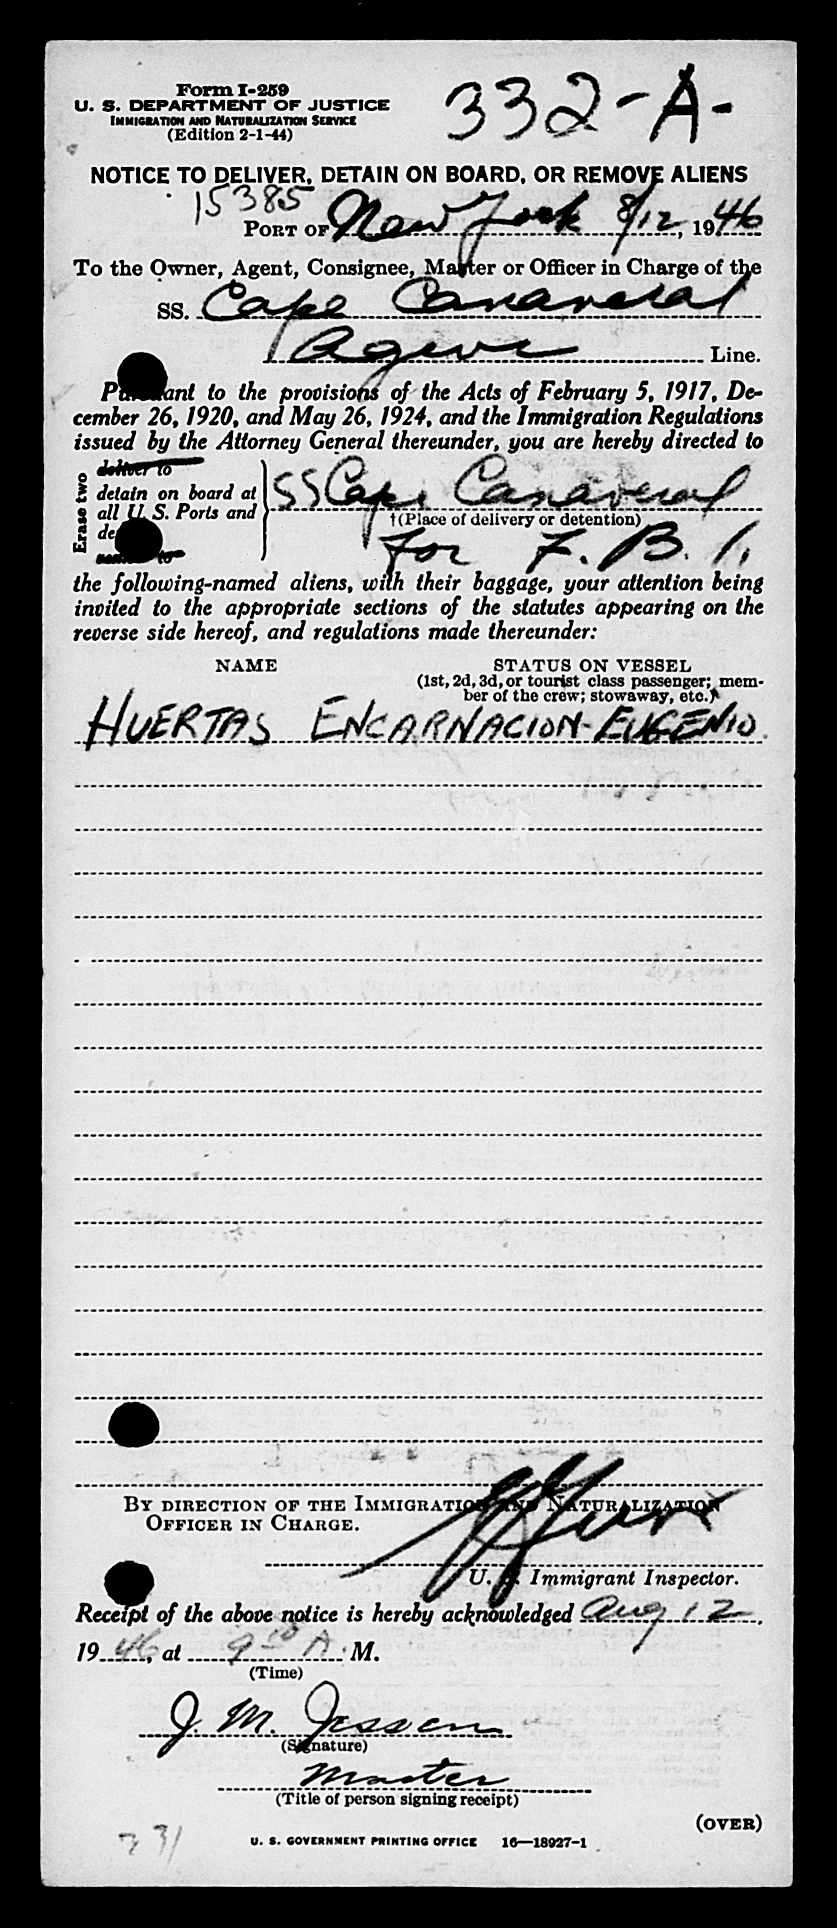 Form I-259
U. S. DEPARTMENT OF JUSTICE
IMMIGRATION AND NATURALIZATION SERVICE
(Edition 2-1-44)
332-A-
NOTICE TO DELIVER, DETAIN ON BOARD, OR REMOVE ALIENS
15385
PORT OF New York 8/12, 1946
To the Owner, Agent, Consignee, Master or Officer in Charge of the
SS. Cape Canaveral
Line.
Pursuant to the provisions of the Acts of February 5, 1917, De-
cember 26, 1920, and May 26, 1924, and the Immigration Regulations
issued by the Attorney General thereunder, you are hereby directed to
Erase two
deliver to
detain on board at
all U. S. Ports and
SS Cape Canaveral
†(Place of delivery or detention)
for F. B. I.
the following-named aliens, with their baggage, your attention being
invited to the appropriate sections of the statutes appearing on the
reverse side hereof, and regulations made thereunder:
NAME
STATUS ON VESSEL
(1st, 2d, 3d, or tourist class passenger; mem-
ber of the crew; stowaway, etc.)
HUERTAS ENCARNACION-EUGENIO
BY DIRECTION OF THE IMMIGRATION AND NATURALIZATION
OFFICER IN CHARGE.
U. S. Immigrant Inspector.
Receipt of the above notice is hereby acknowledged Aug 12,
1946, at 9 10 A. M.
(Time)
J. M. Jessen
(Signature)
Master
(Title of person signing receipt)
(OVER)
U. S. GOVERNMENT PRINTING OFFICE 16—18927-1